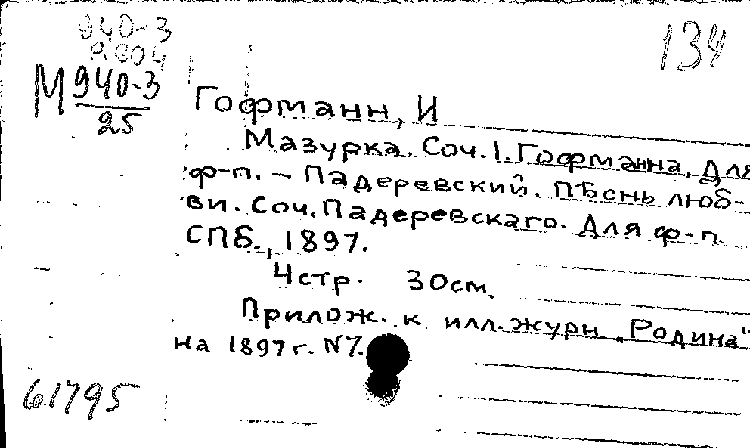 940-3
Р.004
134
М 940-3
25
Гофманн, И
Мазурка. Соч. I. Гофманна. Для
ф-п. – Падеревский. Пѣснь люб-
ви. Соч. Падеревскаго. Для ф-п
СПб., 1897.
4стр. 30см.
Прилож. к илл. журн. „Родина"
на 1897 г. N7.
61795